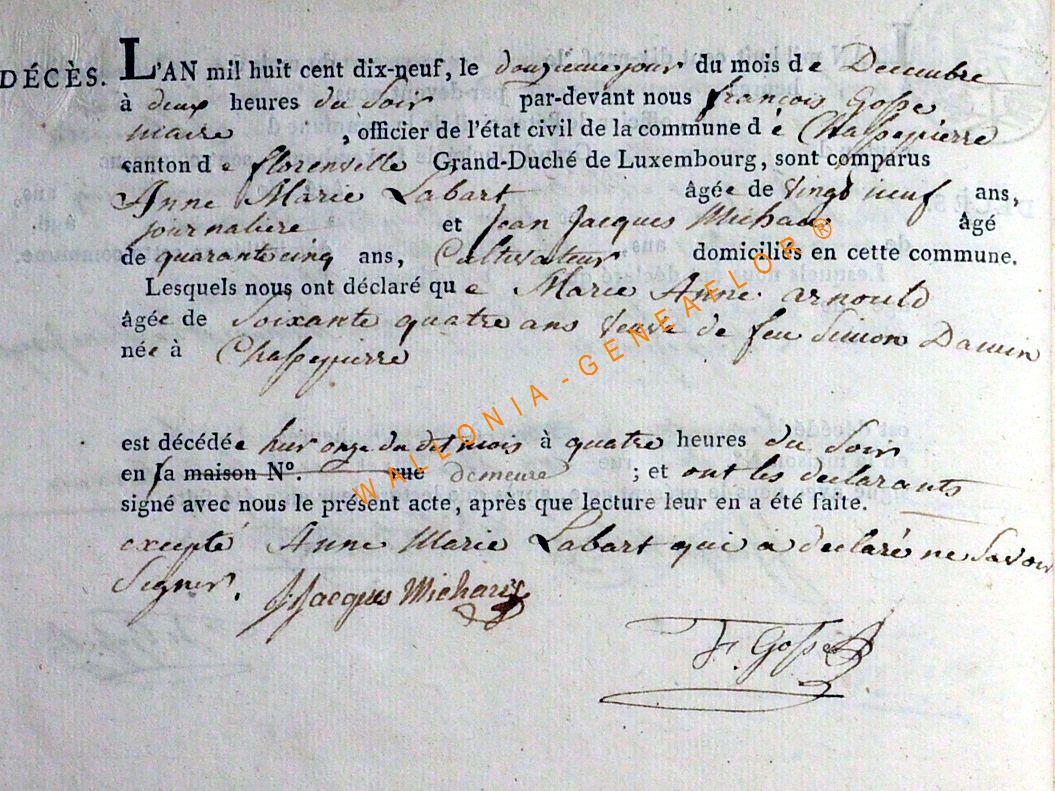 DÉCÈS. L'AN mil huit cent dix-neuf, le douzieme jour du mois de Decembre
à deux heures du Soir par-devant nous françois Gosse
maire , officier de l'état civil de la commune de Chassepierre
canton de florenville Grand-Duché de Luxembourg, sont comparus
Anne Marie Labart âgée de vingt neuf ans,
journaliere et Jean Jacques Michaux âgé
de quarante cinq ans, Cultivateur domiciliés en cette commune.
Lesquels nous ont déclaré que Marie Anne arnould
âgée de Soixante quatre ans veuve de feu Simon Dawin
née à Chassepierre
est décédée hier onze du dit mois à quatre heures du Soir
en sa maison N°. rue demeure ; et ont les declarants
signé avec nous le présent acte, après que lecture leur en a été faite.
excepté Anne Marie Labart qui a declaré ne Savoir
Signer.
JJacques Michaux
F. Gosse
WALLONIA-GENEAELOR®